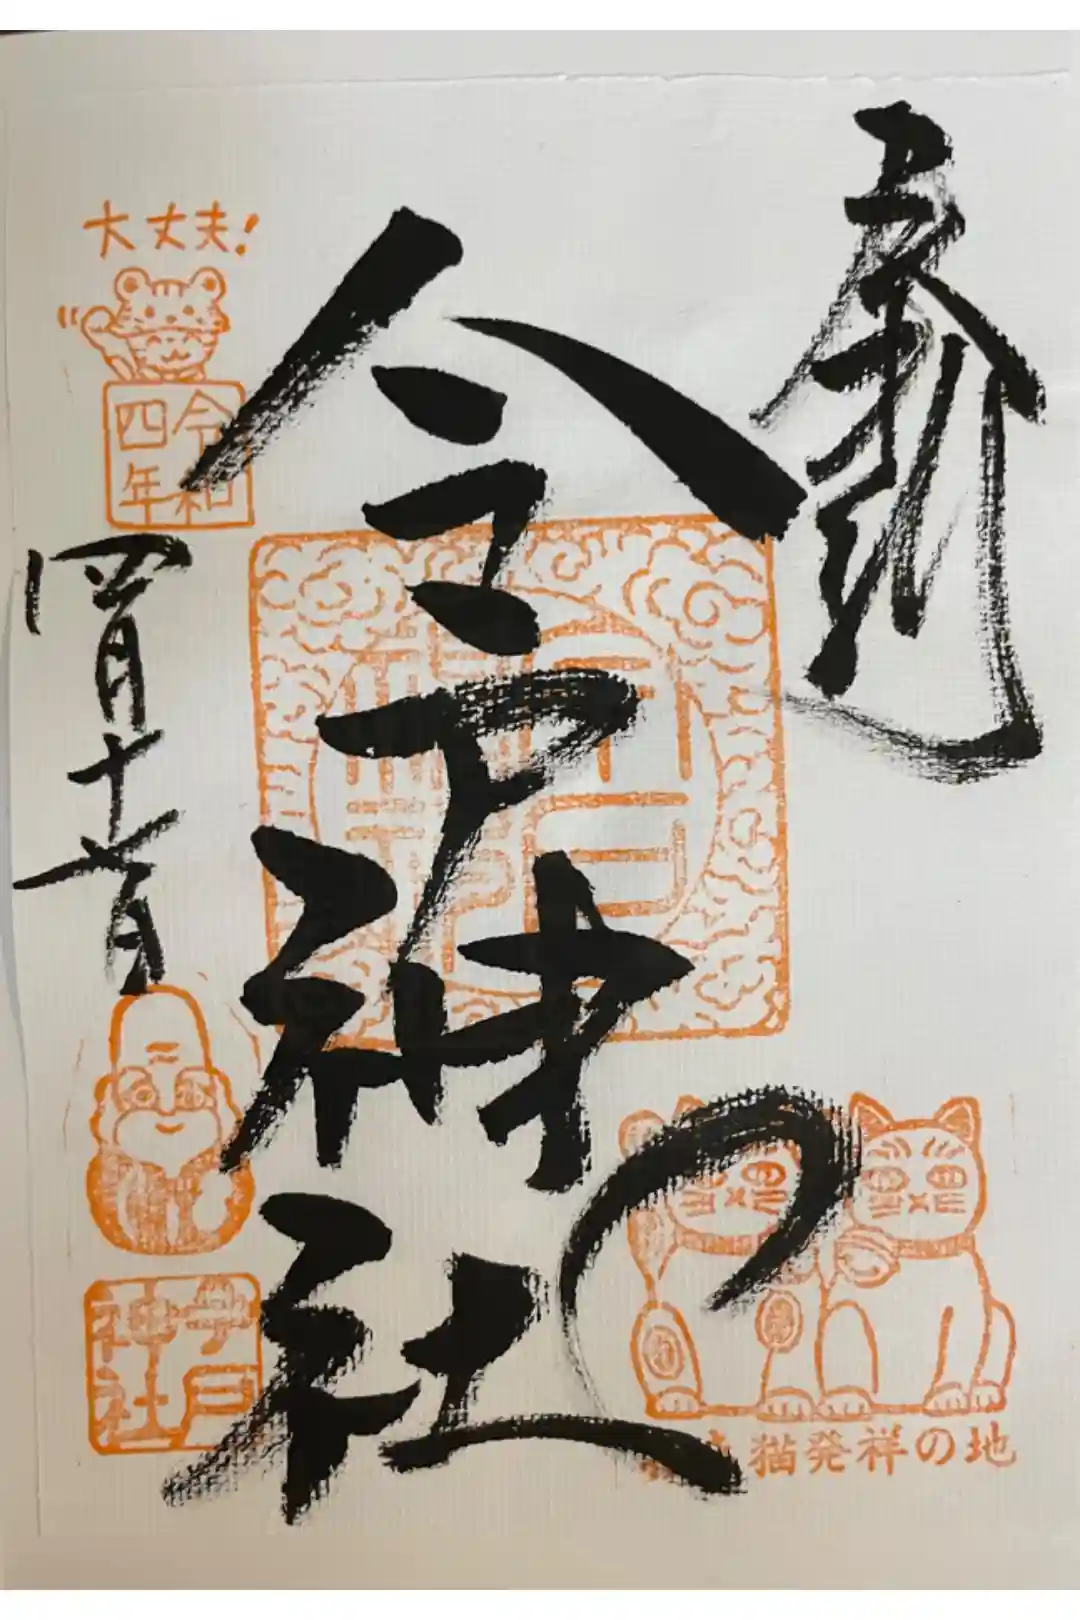 奉拝
今戸神社
大丈夫!
令和
四年
四月十六日
今戸
神社
猫発祥の地